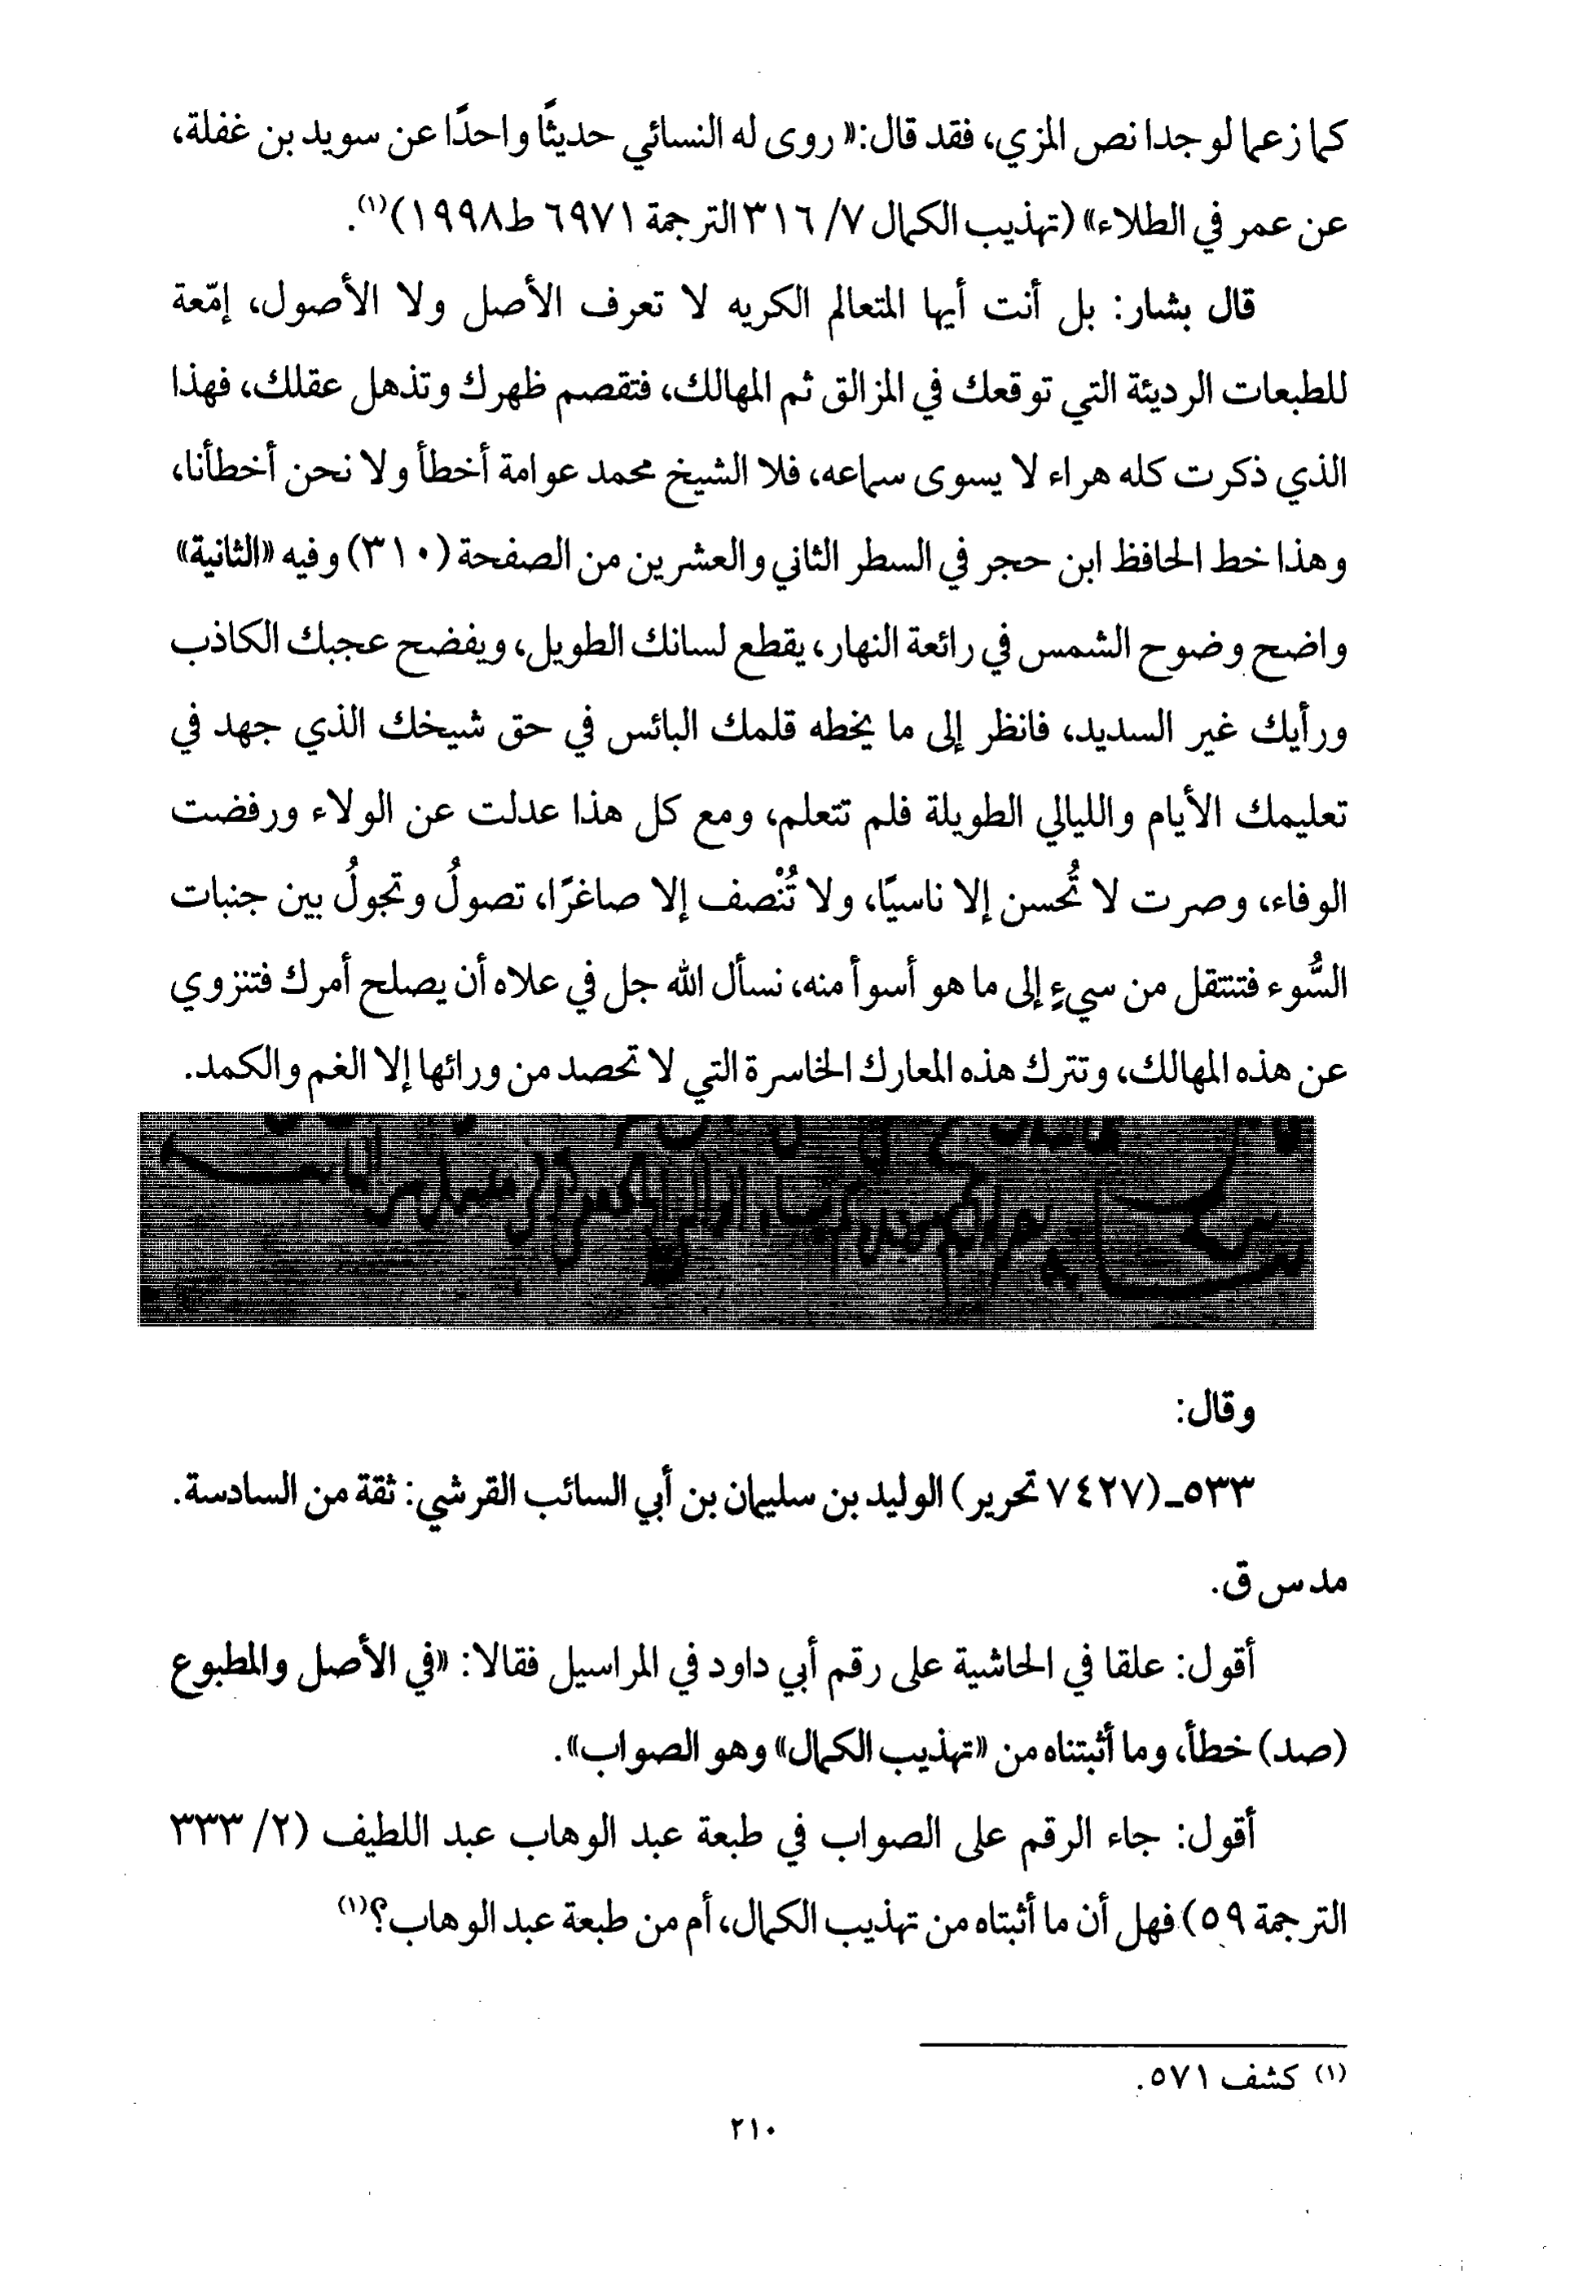 كما زعما لوجدا نص المزي، فقد قال:« روى له النسائي حديثًا واحدًا عن سويد بن غفلة،
عن عمر في الطلاء» (تهذيب الكمال ٧/ ٣١٦ الترجمة ٦٩٧١ ط١٩٩٨)(١).
قال بشار: بل أنت أيها المتعالم الكريه لا تعرف الأصل ولا الأصول، إمّعة
للطبعات الرديئة التي توقعك في المزالق ثم المهالك، فتقصم ظهرك وتذهل عقلك، فهذا
الذي ذكرت كله هراء لا يسوى سماعه، فلا الشيخ محمد عوامة أخطأ ولا نحن أخطأنا،
وهذا خط الحافظ ابن حجر في السطر الثاني والعشرين من الصفحة (٣١٠) وفيه «الثانية»
واضح وضوح الشمس في رائعة النهار، يقطع لسانك الطويل، ويفضح عجبك الكاذب
ورأيك غير السديد، فانظر إلى ما يخطه قلمك البائس في حق شيخك الذي جهد في
تعليمك الأيام والليالي الطويلة فلم تتعلم، ومع كل هذا عدلت عن الولاء ورفضت
الوفاء، وصرت لا تُحسن إلا ناسيًا، ولا تُنْصف إلا صاغرًا، تصولُ وتجولُ بين جنبات
السُّوء فتنتقل من سيءٍ إلى ما هو أسوأ منه، نسأل الله جل في علاه أن يصلح أمرك فتنزوي
عن هذه المهالك، وتترك هذه المعارك الخاسرة التي لا تحصد من ورائها إلا الغم والكمد.
وقال:
٥٣٣ـ (٧٤٢٧ تحرير) الوليد بن سليمان بن أبي السائب القرشي: ثقة من السادسة.
مد س ق.
أقول: علقا في الحاشية على رقم أبي داود في المراسيل فقالا: «في الأصل والمطبوع
(صد) خطأ، وما أثبتناه من «تهذيب الكمال» وهو الصواب».
أقول: جاء الرقم على الصواب في طبعة عبد الوهاب عبد اللطيف (٢/ ٣٣٣
الترجمة ٥٩) فهل أن ما أثبتاه من تهذيب الكمال، أم من طبعة عبد الوهاب؟(١)
(١) كشف ٥٧١.
٢١٠